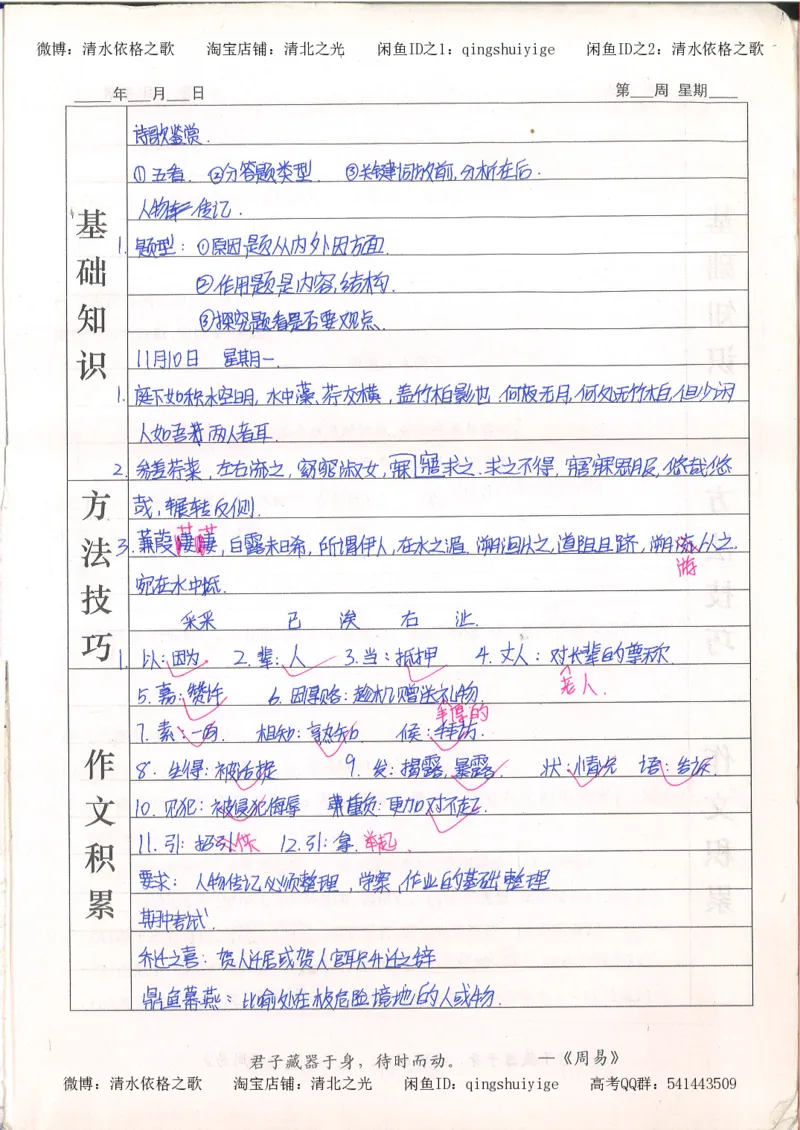 微博：清水依格之歌 淘宝店铺：清北之光 闲鱼ID之1：qingshuiyige 闲鱼ID之2：清水依格之歌
____年___月___日 第___周 星期____
诗歌鉴赏.
①五看. ②分答题类型. ③关键词放前,分析在后.
人物传记.
基础知识
1. 题型：①原因题从内外因方面
②作用题是内容,结构.
③探究题看是否要观点.
11月10日 星期一.
1. 庭下如积水空明, 水中藻、荇交横, 盖竹柏影也. 何夜无月,何处无竹柏,但少闲
人如吾两人者耳.
2. 参差荇菜, 左右流之, 窈窕淑女, 寤寐求之. 求之不得, 寤寐思服, 悠哉悠
哉, 辗转反侧.
方法技巧
3. 蒹葭萋萋, 白露未日希, 所谓伊人, 在水之湄. 溯洄从之, 道阻且跻, 溯游从之.
游
宛在水中坻.
采采 已 涘 右 沚.
1. 以：因为 2. 辈：人 3. 当：抵押 4. 丈人：对长辈的尊称
老人.
5. 嘉：赞许 6. 因厚赂：趁机赠送礼物.
丰厚的
7. 素：一向. 相知：熟知 候：拜访.
作文积累
8. 生得：被活捉 9. 发：揭露,暴露. 状：情况 语：告诉.
10. 见犯：被侵犯侮辱 重负：更加对不起.
11. 引：招引 12. 引：拿. 举起.
要求：人物传记必须整理, 学案,作业的基础整理
期中考试
乔迁之喜：贺人迁居或贺人官职升迁之辞
鼎鱼幕燕：比喻处在极危险境地的人或物.
君子藏器于身，待时而动。 —《周易》
微博：清水依格之歌 淘宝店铺：清北之光 闲鱼ID：qingshuiyige 高考QQ群：541443509